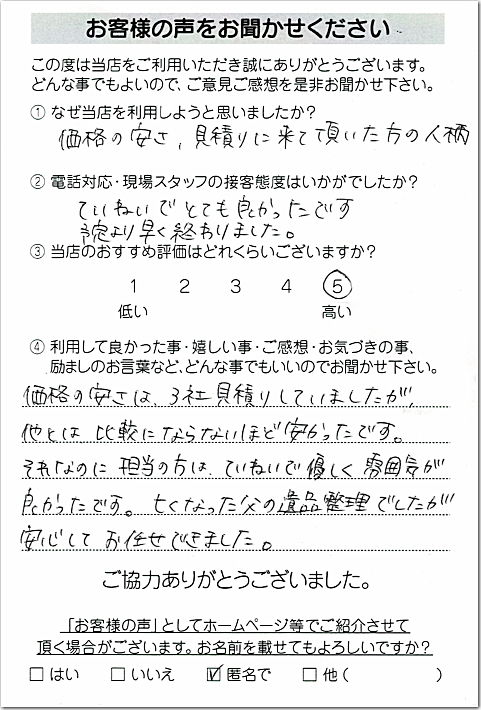 お客様の声をお聞かせください
この度は当店をご利用いただき誠にありがとうございます。
どんな事でもよいので、ご意見ご感想を是非お聞かせ下さい。
① なぜ当店を利用しようと思いましたか?
価格の安さ、見積りに来て頂いた方の人柄
② 電話対応・現場スタッフの接客態度はいかがでしたか?
ていねいでとても良かったです
予定より早く終わりました。
③ 当店のおすすめ評価はどれくらいございますか?
1 2 3 4 5
低い 高い
④ 利用して良かった事・嬉しい事・ご感想・お気づきの事、
励ましのお言葉など、どんな事でもいいのでお聞かせ下さい。
価格の安さは、3社見積りしていましたが、
他とは比較にならないほど安かったです。
それなのに担当の方は、ていねいで優しく雰囲気が
良かったです。亡くなった父の遺品整理でしたが
安心してお任せできました。
ご協力ありがとうございました。
「お客様の声」としてホームページ等でご紹介させて
頂く場合がございます。お名前を載せてもよろしいですか?
□ はい □ いいえ ☑ 匿名で □ 他( )